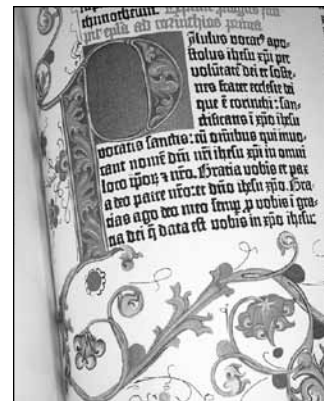 pit epl̄a ad corinthios prima
aulus vocatꝰ apo-
stolus ihesu xp̄i per
volūtatē dei et soste-
nes frater ecclesie dei
que ē corinthi : san-
ctificatis ī xp̄o ihesu
vocatis sanctis : cū omnibus qui invo-
cant nomē dn̄i nr̄i ihesu xp̄i in omni
loco ip̄oꝝ ⁊ nr̄o. Gratia vobis et pax
a deo patre nr̄o : et dn̄o ihesu xp̄o. Gra-
tias ago deo meo semꝑ ꝓ vobis ī gra-
tia dei q̄ data est vobis in xp̄o ihesu: